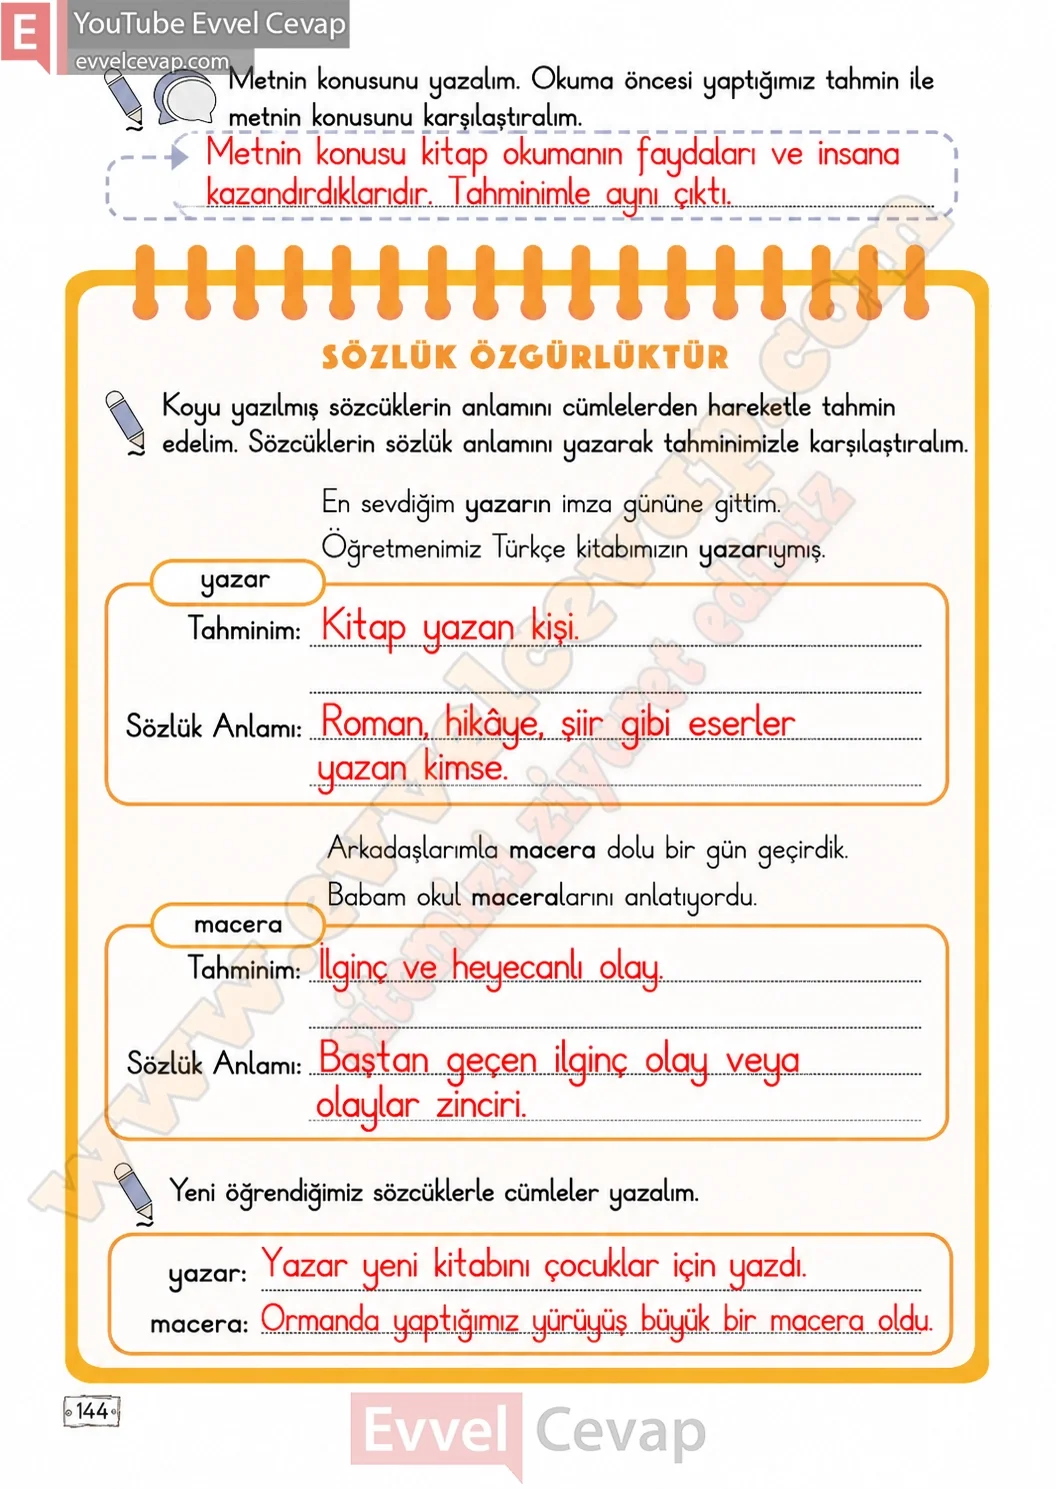 E YouTube Evvel Cevap
evvelcevap.com
Metnin konusunu yazalım. Okuma öncesi yaptığımız tahmin ile
metnin konusunu karşılaştıralım.
Metnin konusu kitap okumanın faydaları ve insana
kazandırdıklarıdır. Tahminimle aynı çıktı.
SÖZLÜK ÖZGÜRLÜKTÜR
Koyu yazılmış sözcüklerin anlamını cümlelerden hareketle tahmin
edelim. Sözcüklerin sözlük anlamını yazarak tahminimizle karşılaştıralım.
En sevdiğim yazarın imza gününe gittim.
Öğretmenimiz Türkçe kitabımızın yazarıymış.
yazar
Tahminim: Kitap yazan kişi.
Sözlük Anlamı: Roman, hikâye, şiir gibi eserler
yazan kimse.
Arkadaşlarımla macera dolu bir gün geçirdik.
Babam okul maceralarını anlatıyordu.
macera
Tahminim: İlginç ve heyecanlı olay.
Sözlük Anlamı: Baştan geçen ilginç olay veya
olaylar zinciri.
Yeni öğrendiğimiz sözcüklerle cümleler yazalım.
yazar: Yazar yeni kitabını çocuklar için yazdı.
macera: Ormanda yaptığımız yürüyüş büyük bir macera oldu.
www.evvelcevap.com
sitemizi ziyaret ediniz
144
Evvel Cevap